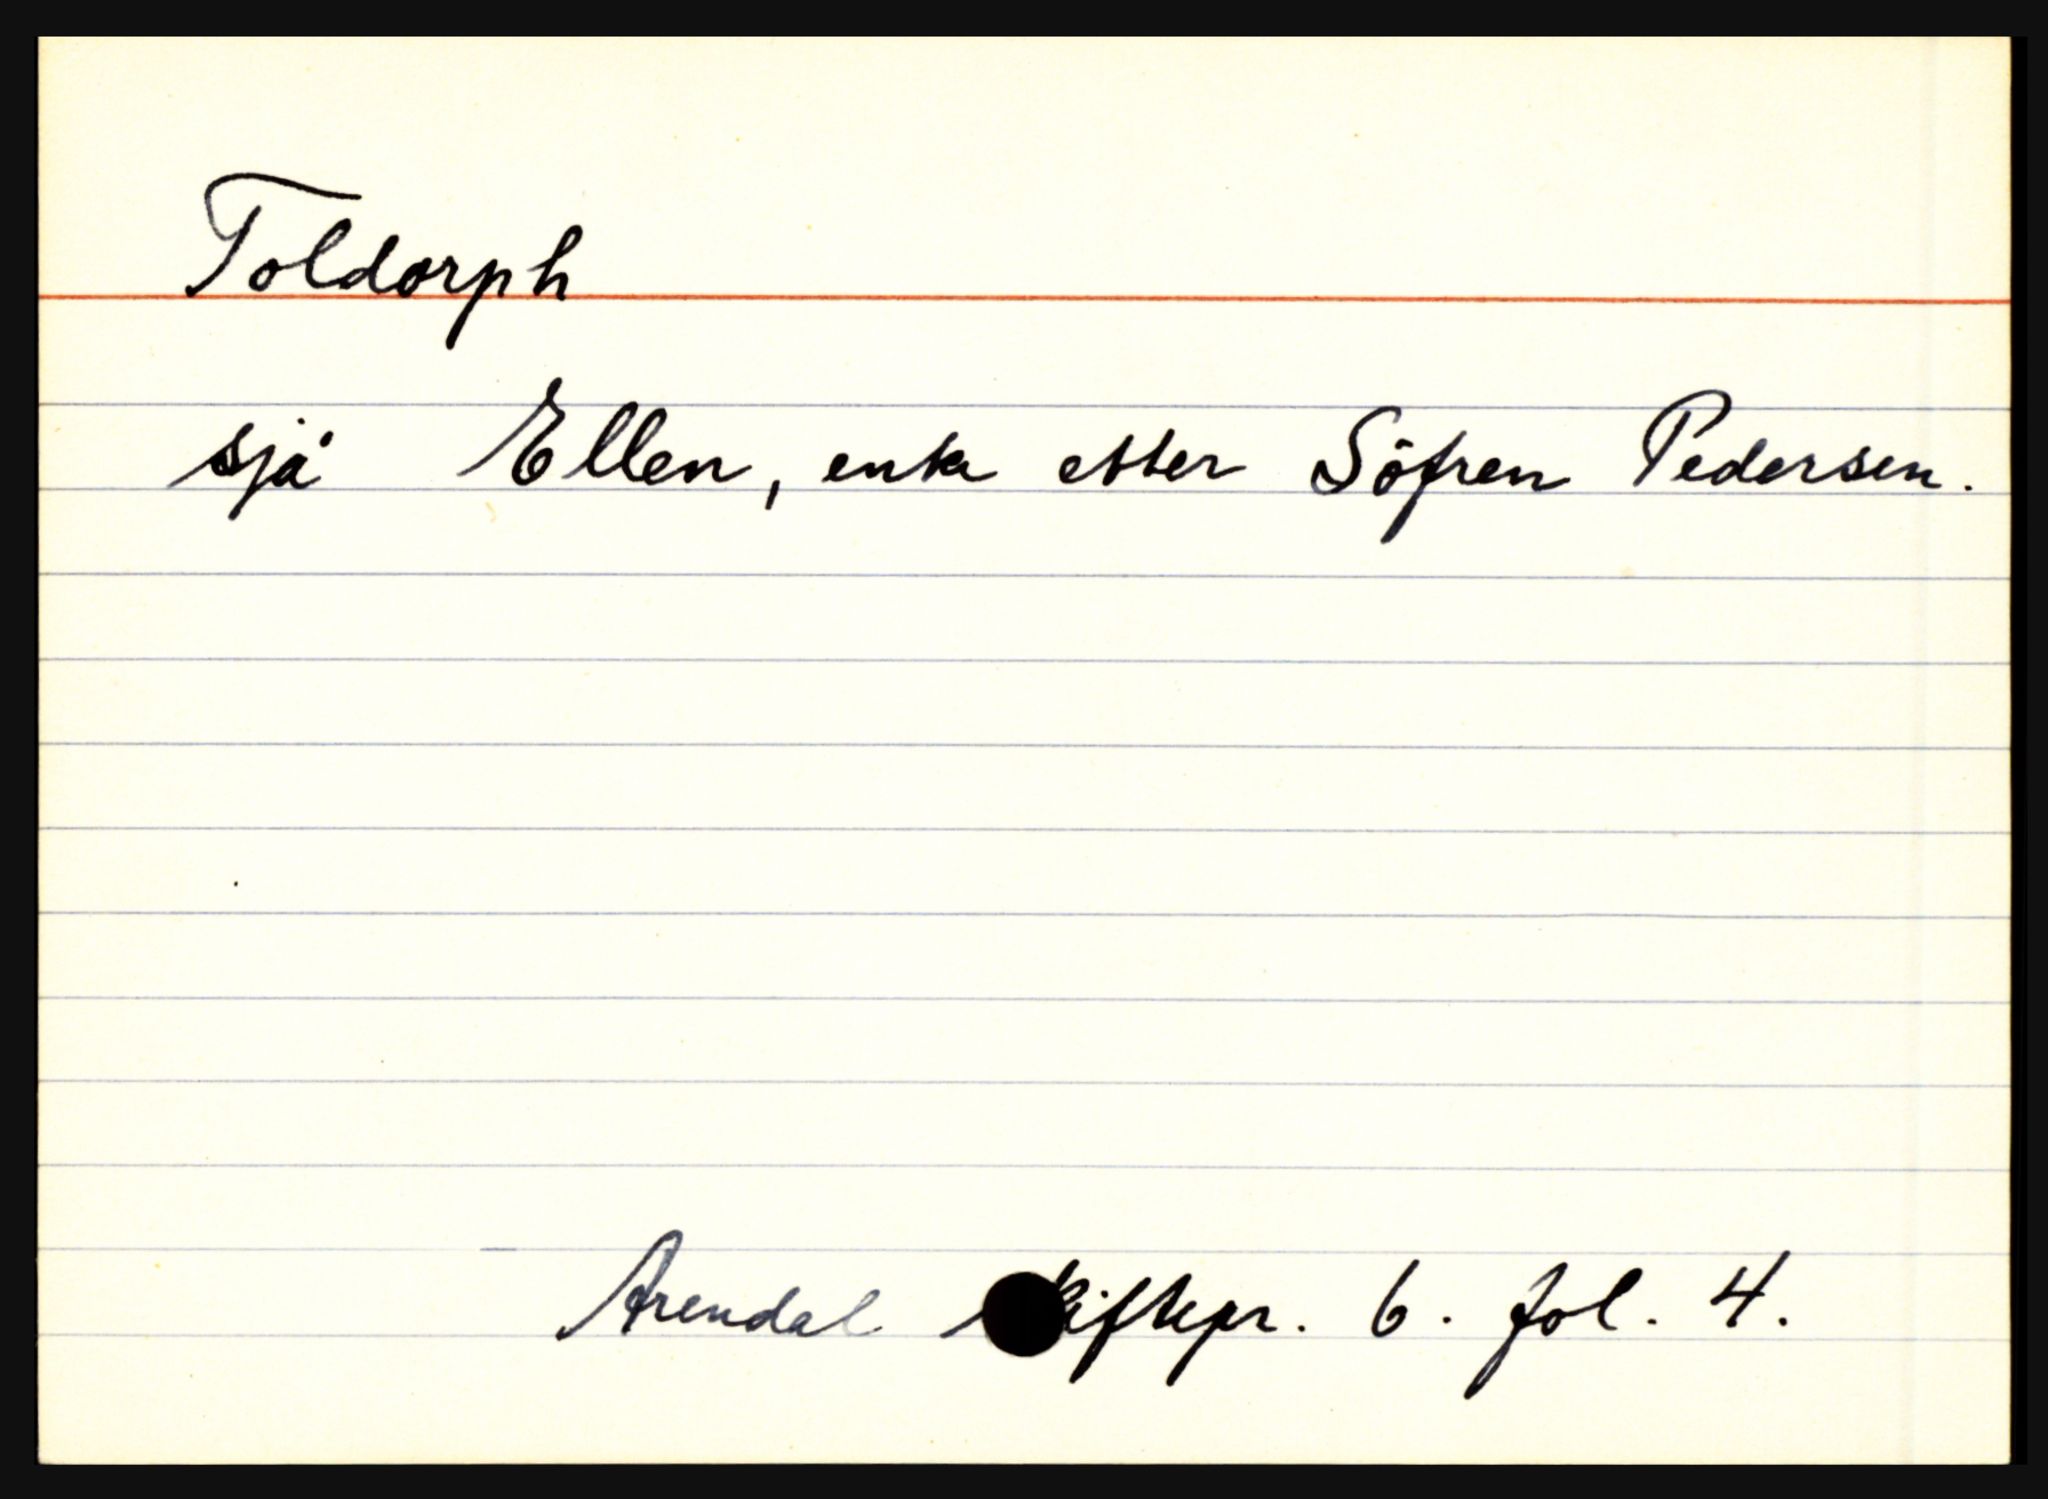 Toldorph
sjå Ellen, enka etter Söfren Pedersen.
Arendal skiftepr. 6. fol. 4.